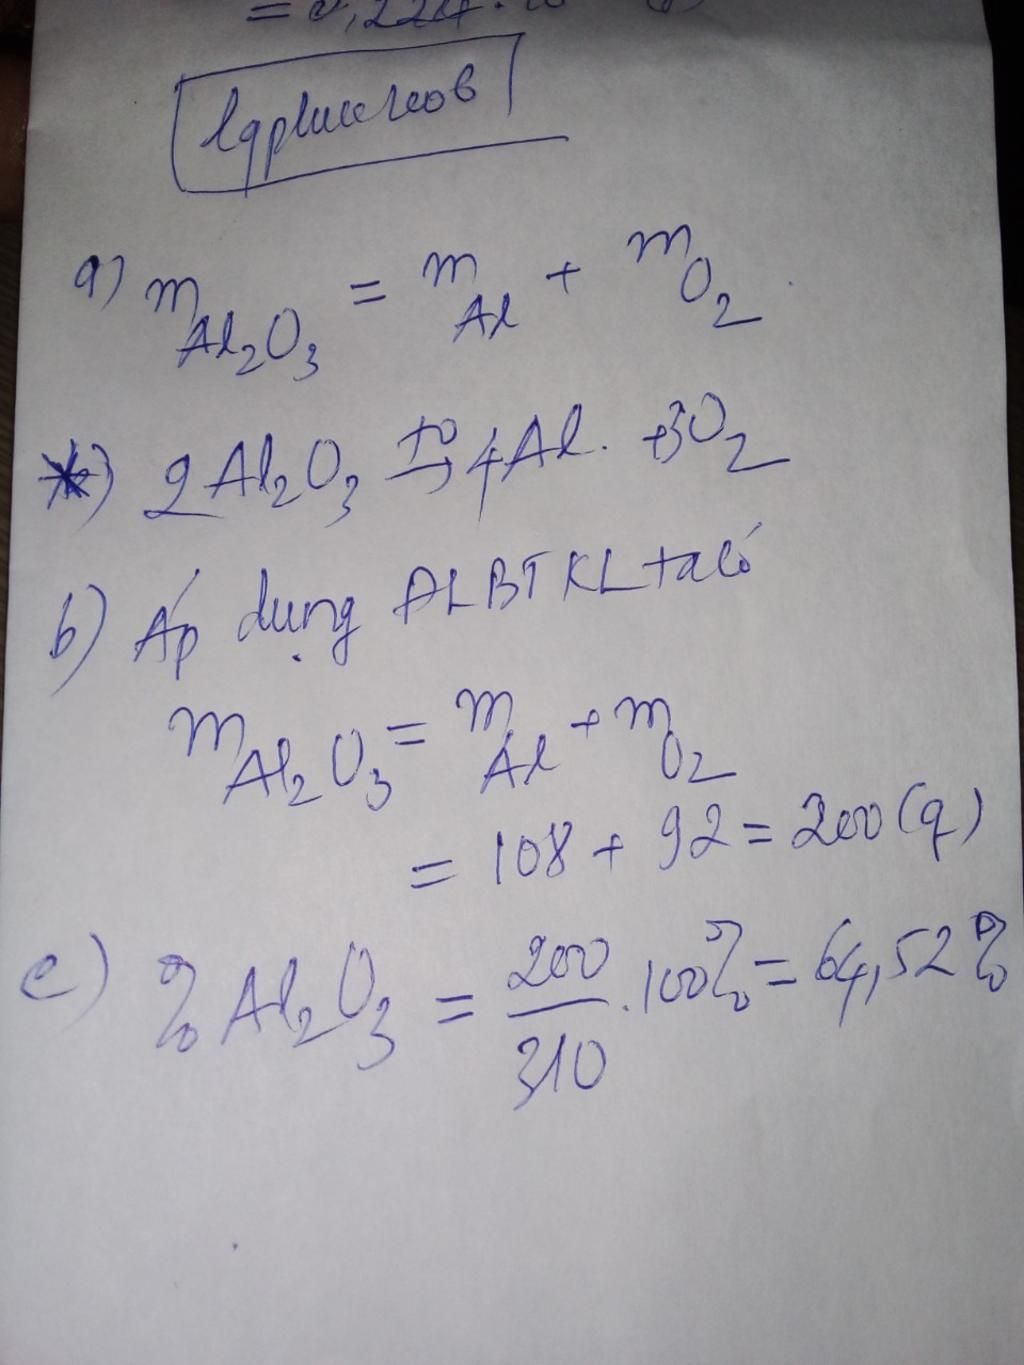 a) mAl₂O₃ = mAl + mO₂
2Al₂O₃ t°→ 4Al. +3O₂
b) Áp dụng ĐLBTKL ta có
mAl₂O₃ = mAl + mO₂
= 108 + 92 = 200 (g)
c) %Al₂O₃ = 200/310 . 100% = 64,52%